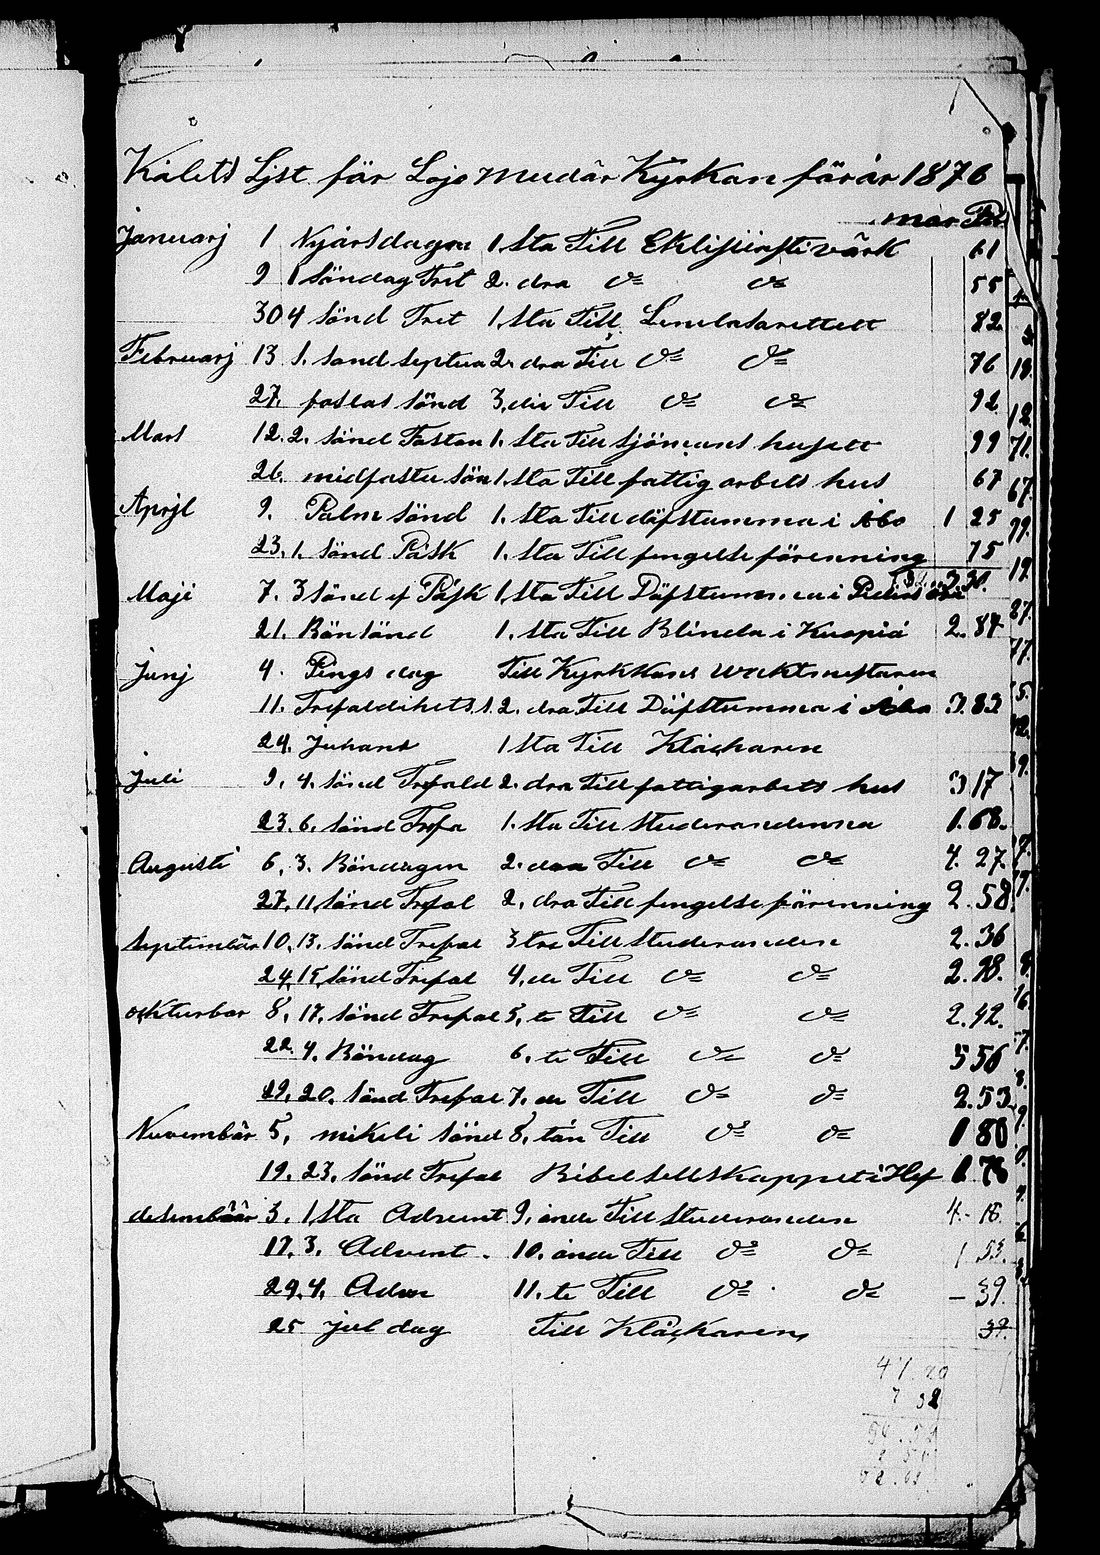 Kålets List får Lojo Mudår Kyrkan får år 1876
mar Pen
Januarj 1 Nyårsdagen 1,sta Till Eklisiastivärk 61
9 1 söndag Tret 2. dra d= d= 55
30 4 sönd Tret 1,sta Till Lendasarettett 82
Februarj 13 1. sand septua 2. dra Till d= d= 76
27. fastas sönd 3,die Till d= d= 92
Mars 12. 2. sönd Fastan 1. sta Till sjömans husett 99
26. midfasta sön 1,sta Till fattig arbets hus 67
Aprjl 9. Palm sönd 1. sta Till döfstumma i Åbo 1 25
23. 1. sönd Påsk 1. sta Till fengelse förenning 75
Maji 7. 3 sönd ef Påsk 1,sta Till Döfstumma i 3 30.
21. Bön sönd 1. sta Till Blinda i Kuopiå 2. 84
Junj 4. Pings dag Till Kyrkkans waktmestaren
11. Trefaldihets 1. 2. dra Till Döfstumma i Åbo 3. 83
24. Juhans 1 sta Till Klåckaren
Juli 9, 4. sönd Trefald 2. dra Till fattigarbets hus 3 17
23. 6. sönd Trefa 1. sta Till studerandenna 1. 68.
Augusti 6, 3. Böndagen 2. dra Till d= d= 4. 27.
27. 11, sönd Trefal 2. dra Till fengelse förenning 2. 58
septimbär 10, 13. sönd Trefal 3 tre Till studeranden 2. 36
24, 15, sönd Trefal 4, de Till d= d= 2. 98.
okturbar 8, 17, sönd Trefal 5, te Till d= d= 2. 42.
22. 4. Böndag 6. te Till d= d= 5 56
29, 20. sönd Trefal 7. de Till d= d= 2. 53
Nuvembär 5, mikeli sönd 8, tån Till d= d= 1 80
19. 23. sönd Trefal Bibelsellskappet i Hef 1. 76
desembäär 3. 1,sta Advent 9, ånde Till studeranden 4. 16.
17, 3. Advent. 10. ånde Till d= d= 1 53.
24, 4. Adve 11. te Till d= d= – 39.
25 jul dag Till Klåckaren, 39.
47 20
7 32